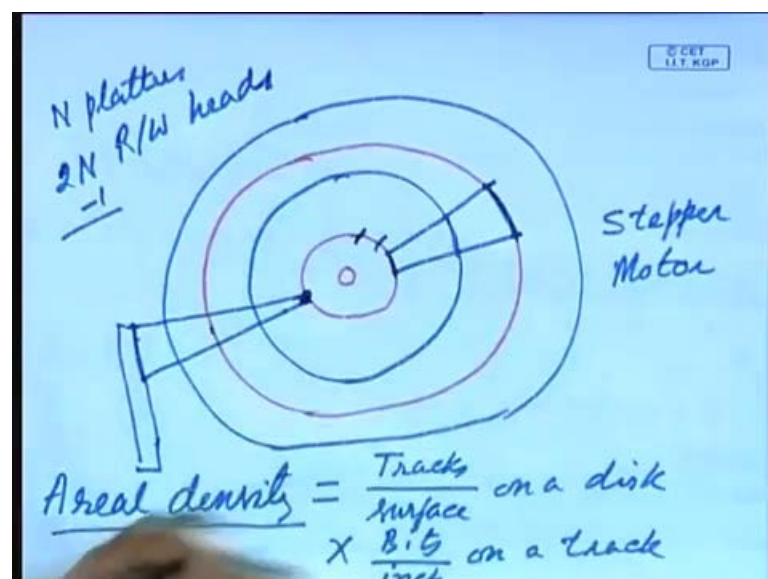 © CET
I.I.T. KGP
N platters
2N R/W heads
-1
Stepper
Motor
Areal density = Tracks
surface on a disk
× Bits
inch on a track